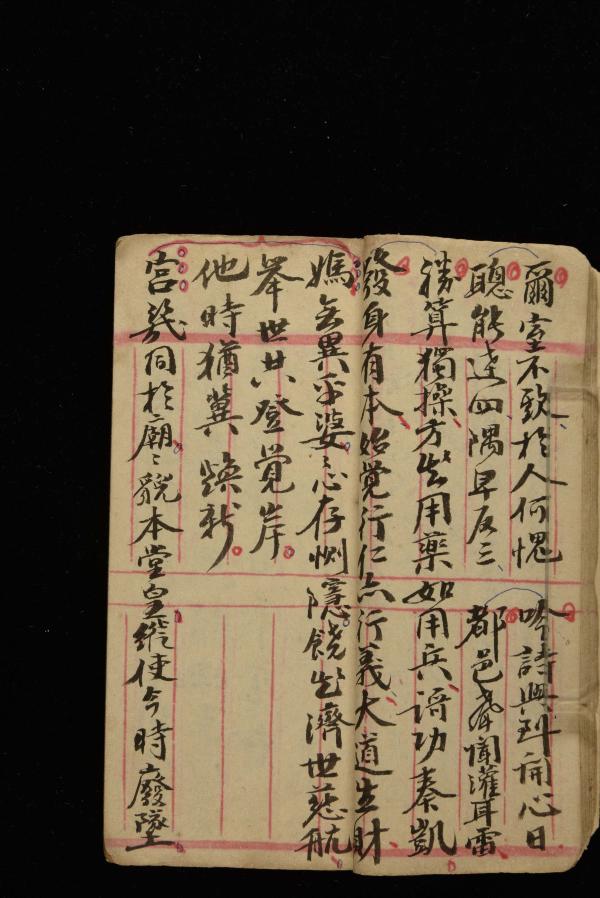 爾室不欺於人何愧 吟詩與到開心日
聰能達四隅早反三 都邑舂聞灌耳雷
勝算獨操方出用藥如用兵語功奏凱
發身有本始覚行仁亦行義大道生財
媽無異乎婆〻心存惻隱饒出濟世慈航
舉世共登覚岸
他時猶冀煥新
宮幾同於廟〻貌本堂皇縱使今時廢墜